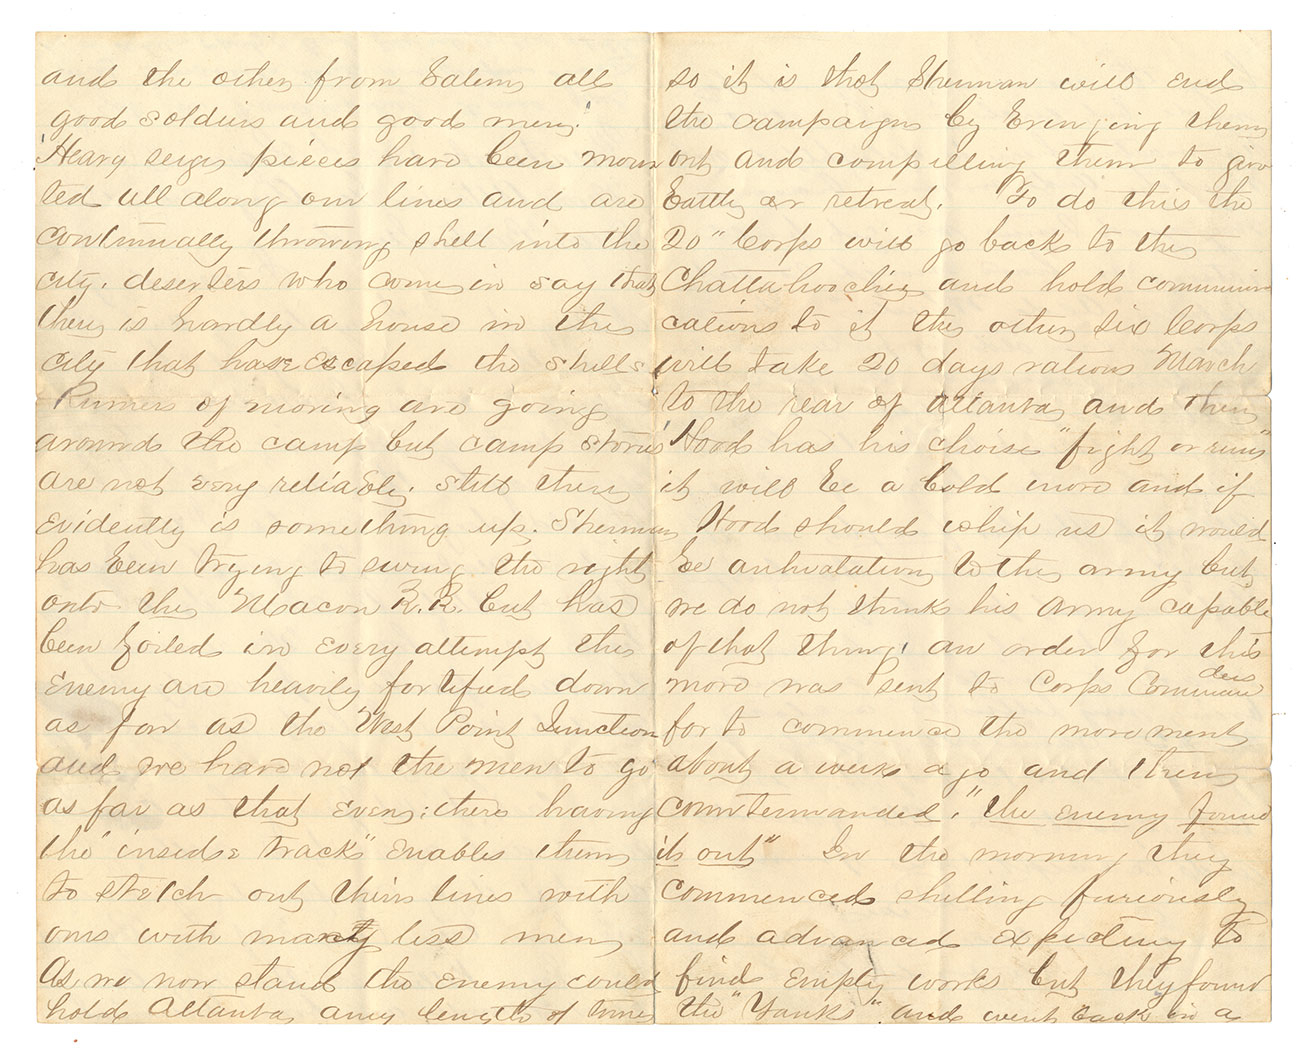 and the other from Salem, all
good soldiers and good men."
"Heavy seige pieces have been moun
ted all along our lines and are
continually throwing shell into the
city. deserters who come in say that
there is hardly a house in the
city that have escaped the shells
Rumers of moving are going
around the camp but camp stories
are not very reliable, still there
evidently is something up. Sherman
has been trying to swing the right
onto the Macon R.R. but has
been foiled in every attempt the
enemy are heavily fortified down
as far as the West Point Junction
and we have not the men to go
as far as that even; there having
the "inside track" enables them
to stretch out their lines with
ours with many less men.
As we now stand the enemy could
hold Atlanta any length of time
so it is that Sherman will end
the campaign by bringing them
out and compelling them to give
battle or retreat. To do this the
20" Corps will go back to the
Chattahoochee and hold communi
cations to it the other six Corps
will take 20 days rations March
to the rear of Atlanta and then
Hood has his choise "fight or run"
it will be a bold move and if
Hood should whip us it would
be anhulation to the army but
we do not think his army capable
of that thing, an order for this
move was sent to Corps Comman
ders
for to commence the movement
about a week ago and then
countermanded, "the enemy found
it out" In the morning they
commenced shelling furiously
and advanced expecting to
find empty works but they found
the "Yanks" and went back in a